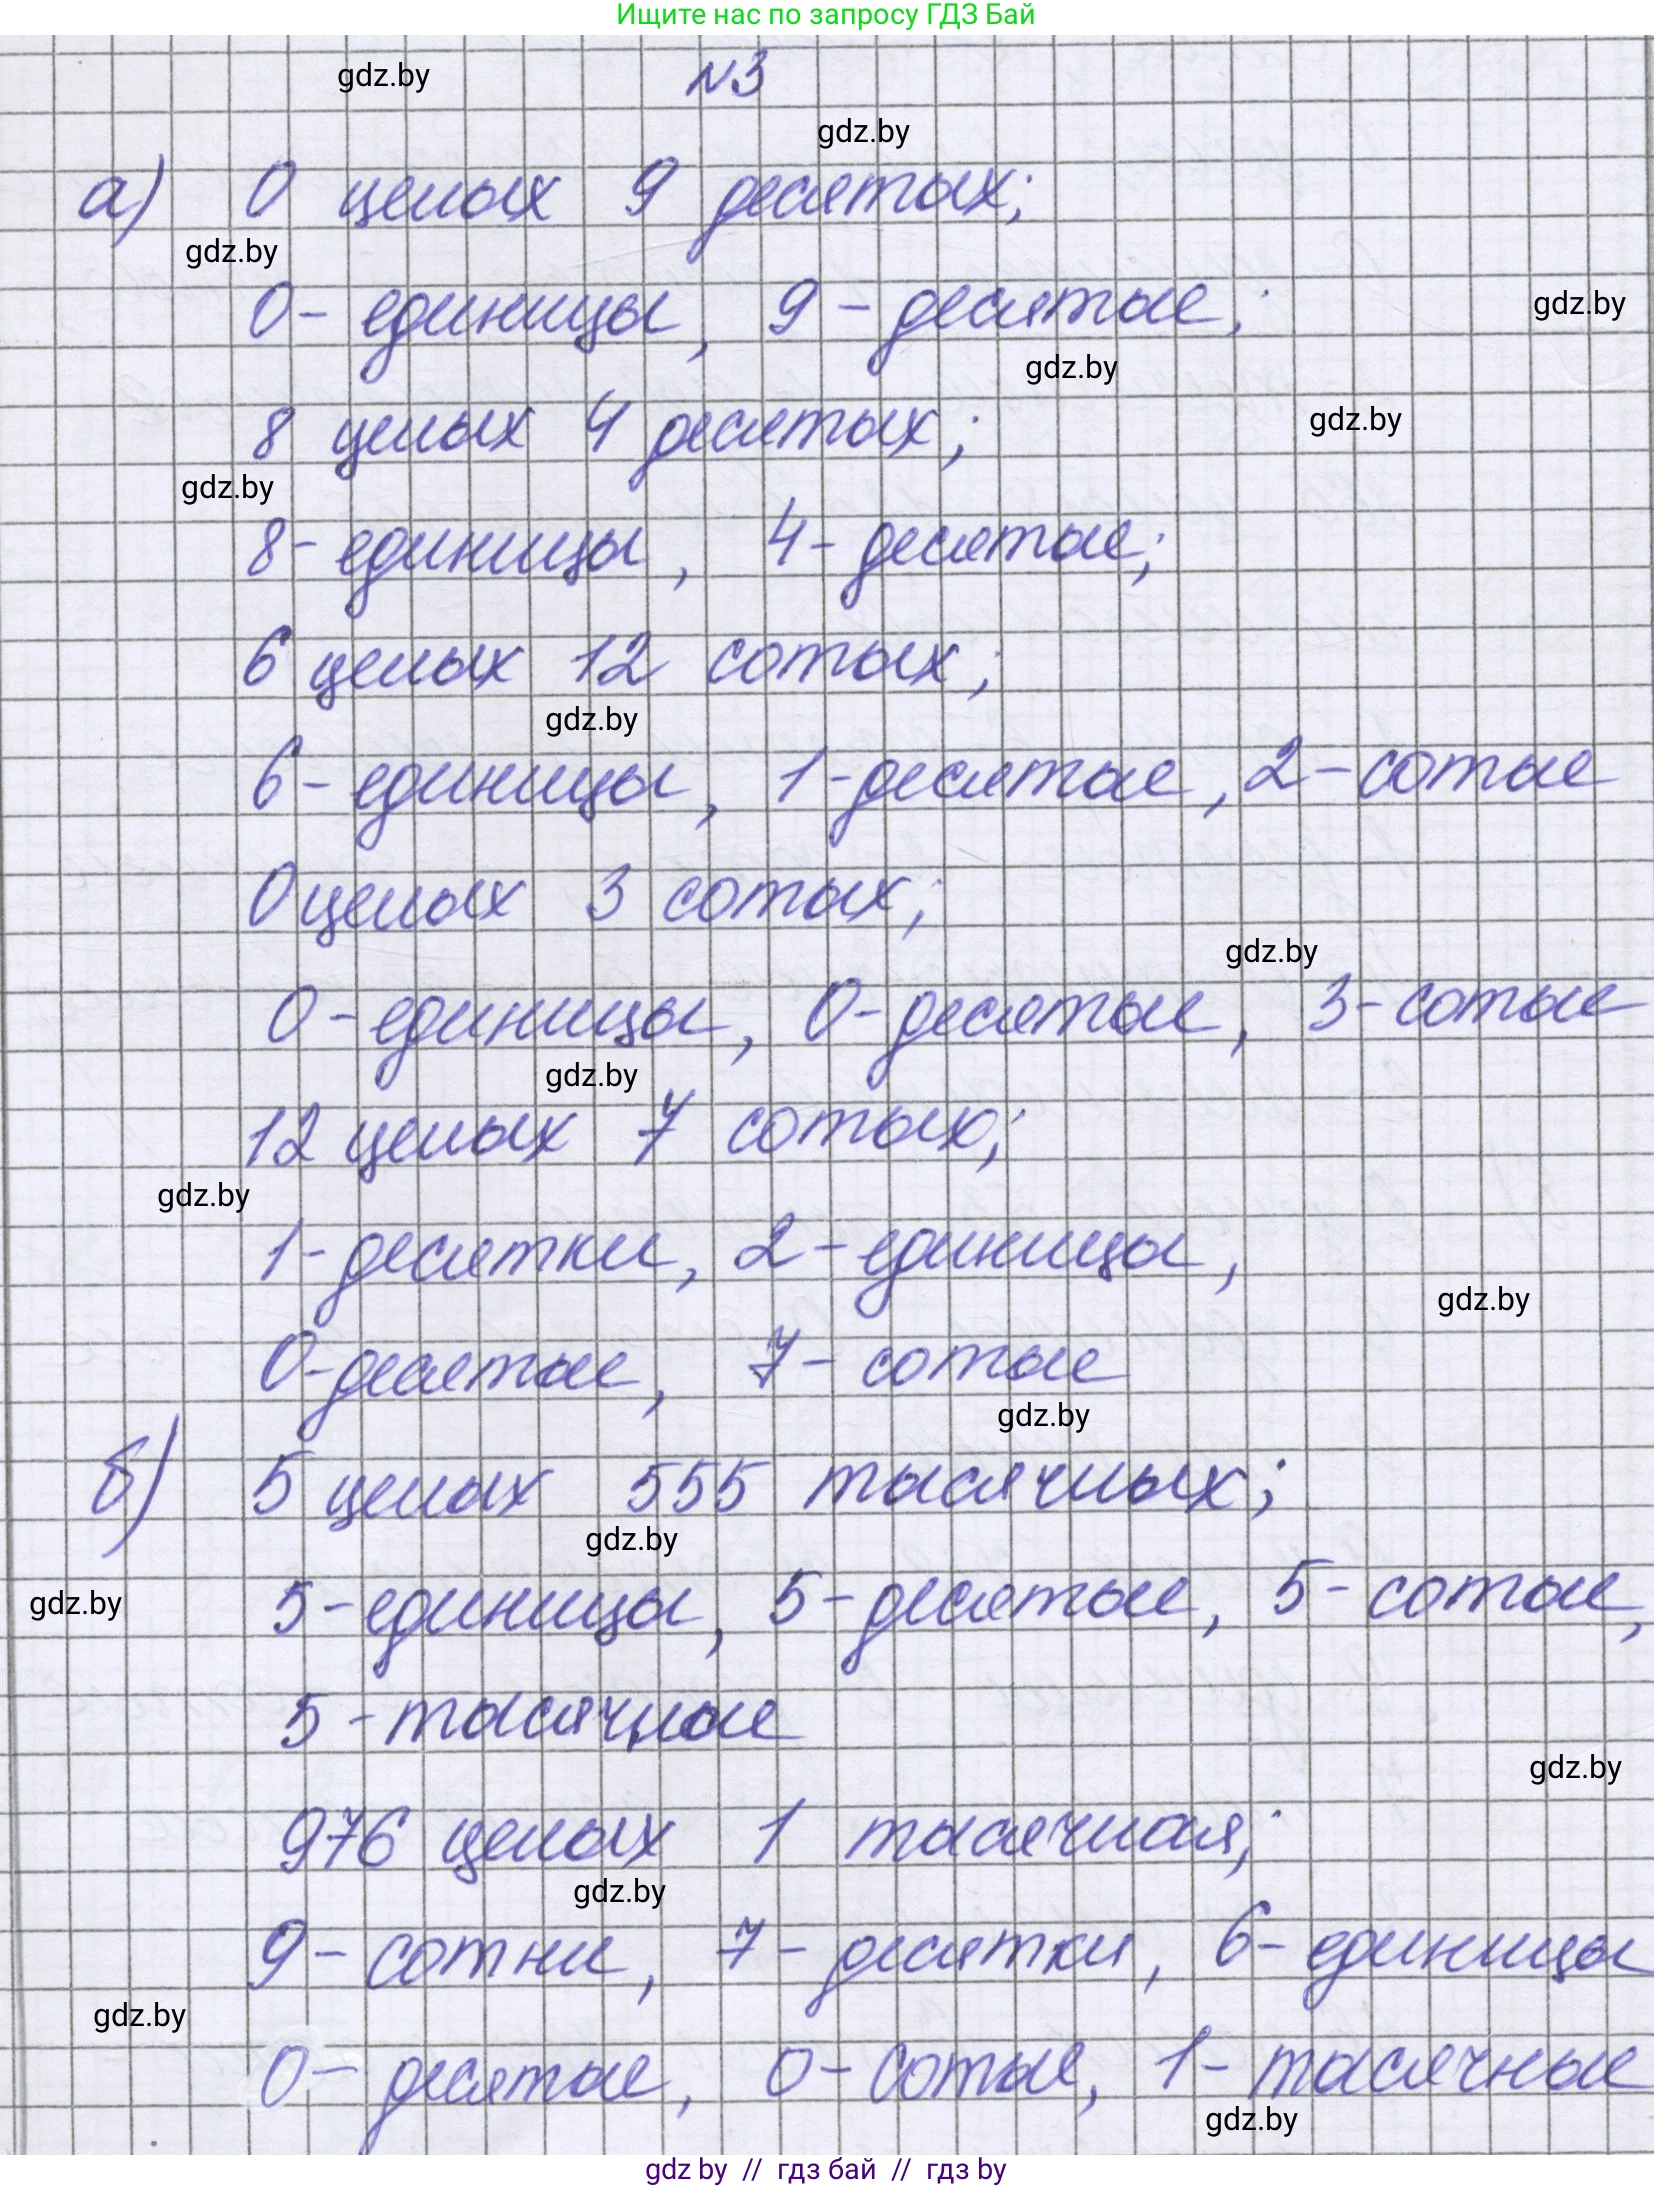 Ищите нас по запросу ГДЗ Бай
gdz.by
№3
gdz.by
а) 0 целых 9 десятых;
gdz.by
0 - единицы, 9 - десятые;
gdz.by
gdz.by
8 целых 4 десятых;
gdz.by
gdz.by
8 - единицы, 4 - десятые;
6 целых 12 сотых;
gdz.by
6 - единицы, 1 - десятые, 2 - сотые
0 целых 3 сотых;
gdz.by
0 - единицы, 0 - десятые, 3 - сотые
gdz.by
12 целых 7 сотых;
gdz.by
1 - десятки, 2 - единицы,
gdz.by
0 - десятые, 7 - сотые
gdz.by
б) 5 целых 555 тысячных;
gdz.by
gdz.by
5 - единицы, 5 - десятые, 5 - сотые,
5 - тысячные
gdz.by
976 целых 1 тысячная;
gdz.by
9 - сотни, 7 - десятки, 6 - единицы
gdz.by
0 - десятые, 0 - сотые, 1 - тысячные
gdz.by
gdz by // гдз бай // гдз by